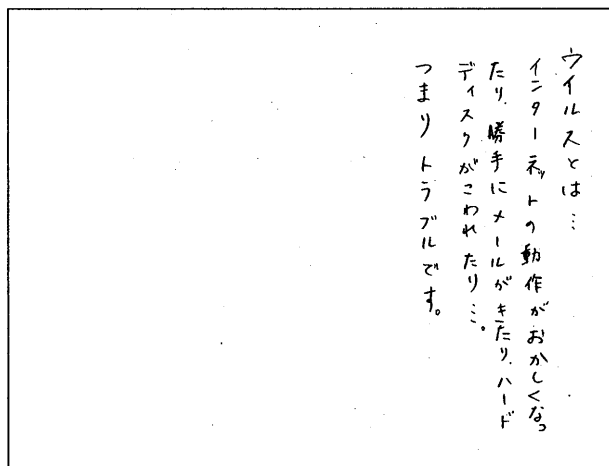 ウイルスとは…
インターネットの動作がおかしくなっ
たり、勝手にメールがきたり、ハード
ディスクがこわれたり…。
つまりトラブルです。